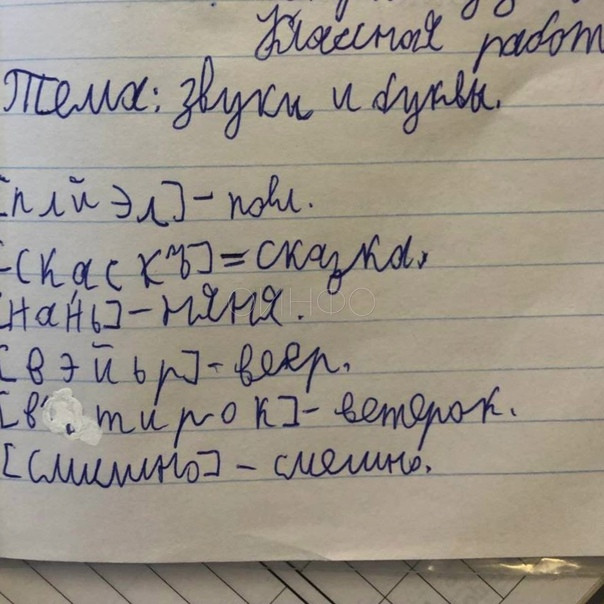 Классная работ
Тема: звуки и буквы.
[плйэл] - поел.
[скаскъ] = сказка.
[нань] - няня.
[вэйьр] - веер.
[в', тирок] - ветерок.
[смишно] - смешно.